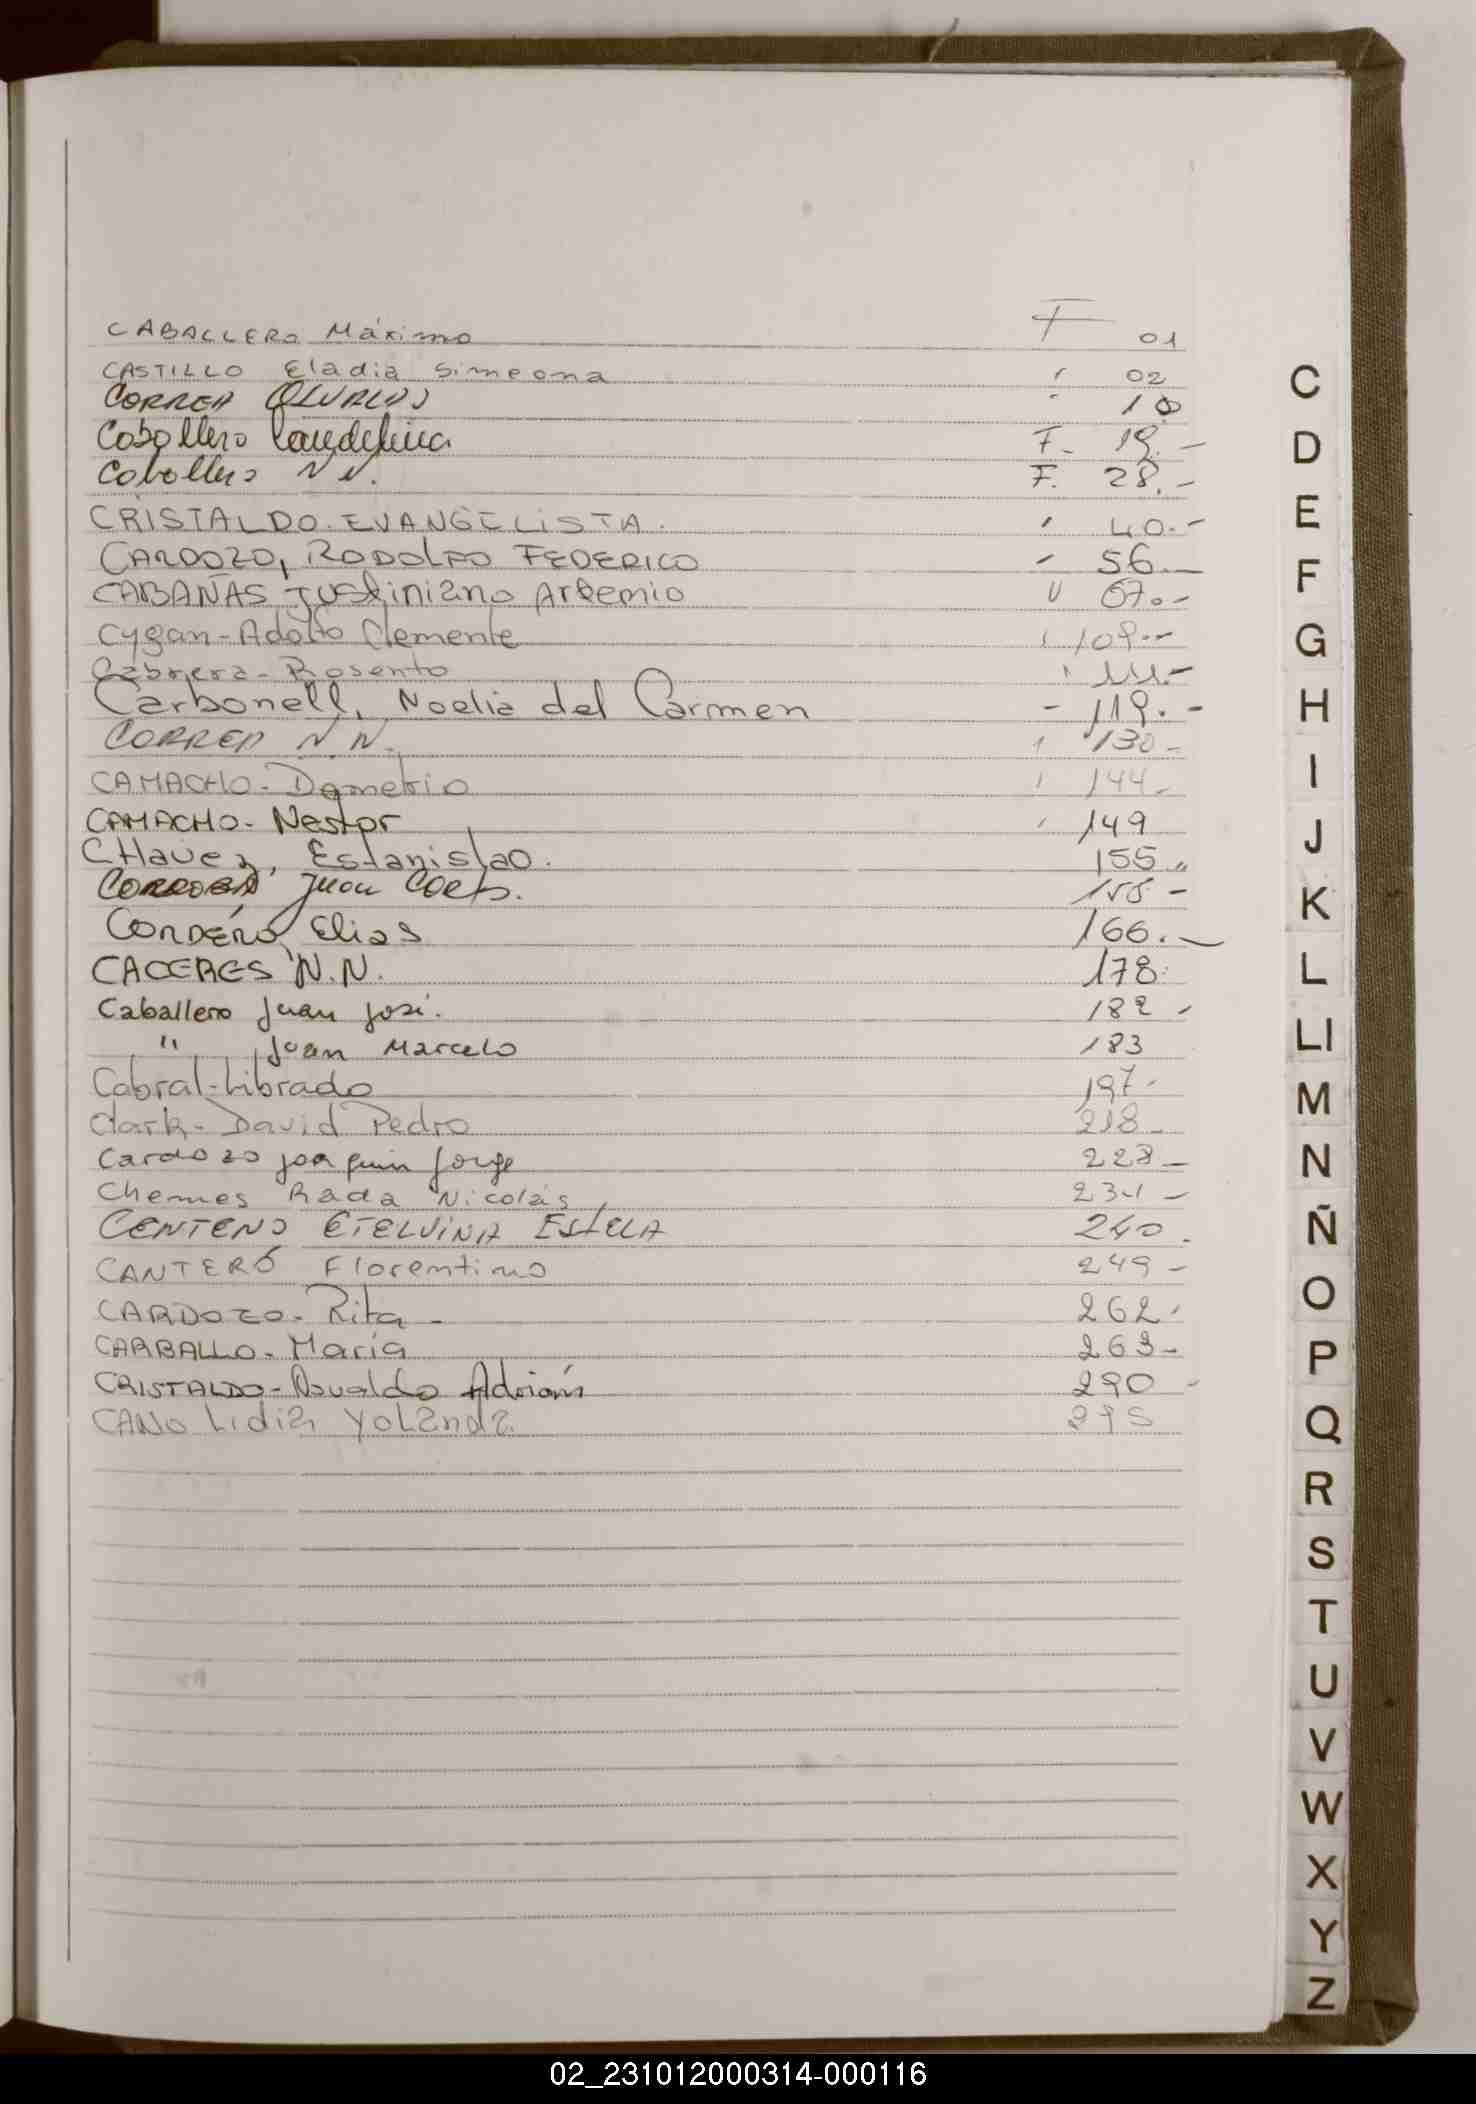 CABALLERO Máximo F 01
CASTILLO Eladia Simeona " 02
CORREA OSVALDO " 10
Caballero Laudelina F. 19.-
Caballero N N. F. 28.-
CRISTALDO. EVANGELISTA. " 40.-
CARDOZO, RODOLFO FEDERICO " 56.-
CABAÑAS Justiniano Artemio " 07.-
Cygan-Adolfo Clemente " 109.--
Cabrera-Rosento " 111.-
Carbonell, Noelia del Carmen - 119.-
CORREA N.N. " 130-
CAMACHO-Demetrio " 144-
CAMACHO-Nestor " 149
CHavez, Estanislao. 155"
CORDOBA, Juan Carlos. 155-
CORDERO, Elias 166.-
CACERES N.N. 178.
Caballero Juan José. 182-
" Juan Marcelo 183
Cabral-Librado 197-
Clark-David Pedro 218-
Cardozo Joaquin Jorge 228-
Chemes Rada Nicolás 231-
CENTENO ETELVINA ESTELA 240.
CANTERO Florentino 249-
CARDOZO-Rita- 262-
CARBALLO-María 263-
CRISTALDO-Osvaldo Adrian 290-
CANO Lidia YoLanda 295
C
D
E
F
G
H
I
J
K
L
Ll
M
N
Ñ
O
P
Q
R
S
T
U
V
W
X
Y
Z
02_231012000314-000116